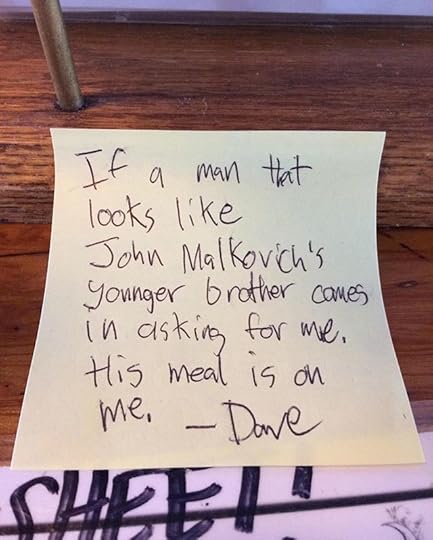 If a man that
looks like
John Malkovich's
younger brother comes
in asking for me.
His meal is on
me. — Dave
SHEET!